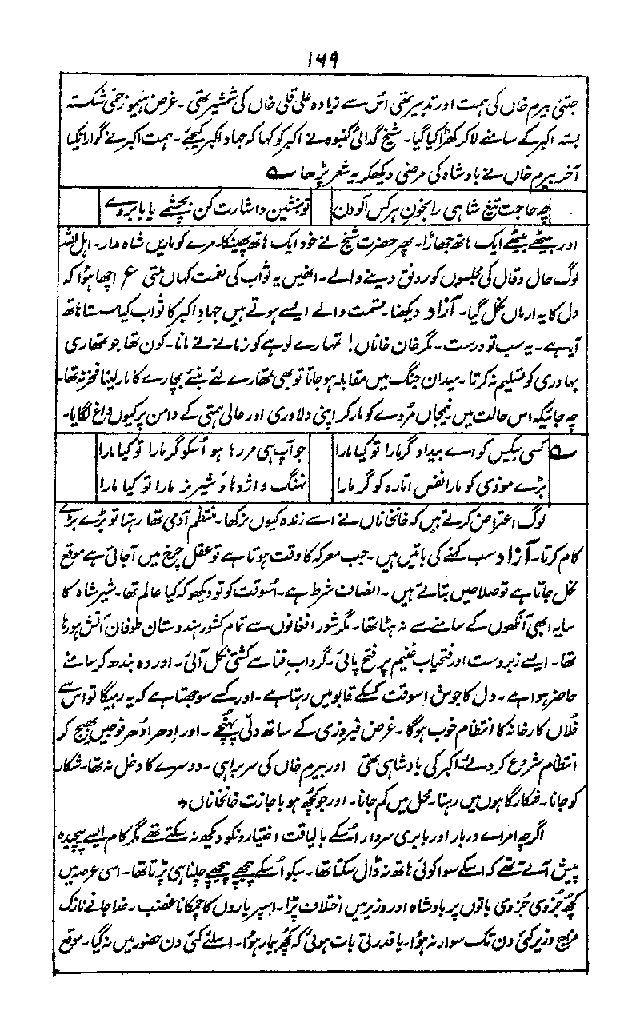 ۱۶۹
جتنی بیرم خاں کی ہمت اور تدبیر تھی اس سے زیادہ علی قلی خاں کی شمشیر تھی۔ غرض ہیمو زخمی شکستہ
بستہ اکبر کے سامنے لاکر کھڑا کیا گیا۔ شیخ گدائی کنبوہ نے اکبر کو کہا کہ جہاد اکبر کیجئے۔ ہمت اکبر نے گوارا نکیا
آخر بیرم خاں نے بادشاہ کی مرضی دیکھکر یہ شعر پڑھا ؎
چہ حاجت تیغ شاہی را بخون ہرکس آلودن
تو بنشین و اشارت کن بچشمے یا بابروے
اور بیٹھے بیٹھے ایک ہاتھ جھاڑا۔ پھر حضرت شیخ نے خود ایک ہاتھ پھینکا۔ مرے کو ماریں شاہ مدار۔ اہل اللہ
لوگ حال و قال کی مجلسوں کو رونق دینے والے۔ انھیں یہ ثواب کی نعمت کہاں ملتی ع اچھا ہوا کہ
دل کا یہ ارماں نکل گیا۔ آزاد دیکھنا۔ قسمت والے ایسے ہوتے ہیں جہاد اکبر کا ثواب کیا سستا ہاتھ
آیا ہے۔ یہ سب تو درست۔ مگر خان خاناں! تمہارے لوہے کو زمانے نے مانا۔ کون تھا جو تمھاری
بہادری کو تسلیم نہ کرتا۔ میدان جنگ میں مقابلہ ہو جاتا تو بھی تمھارے لئے بنئے بچارے کا مار لینا فخر نہ تھا۔
چہ جائیکہ اس حالت میں نیمجاں مردے کو مار کر اپنی دلاوری اور عالی ہمتی کے دامن پر کیوں داغ لگایا۔
؎ کسی بیکس کو اے بیداد گر مارا تو کیا مارا
جو آپ ہی مر رہا ہو اسکو گر مارا تو کیا مارا
بڑے موذی کو مارا نفس امارہ کو گر مارا
نہنگ و اژدہا و شیر نر مارا تو کیا مارا
لوگ اعتراض کرتے ہیں کہ خانخاناں نے اسے زندہ کیوں نرکھا۔ منتظم آدمی تھا رہتا تو بڑے بڑے
کام کرتا۔ آزاد سب کہنے کی باتیں ہیں۔ جب معرکہ کا وقت ہوتا ہے تو عقل چرخ میں آ جاتی ہے موقع
نکل جاتا ہے تو صلاحیں بتاتے ہیں۔ انصاف شرط ہے۔ اسوقت کو تو دیکھو کہ کیا عالم تھا۔ شیر شاہ کا
سایہ ابھی آنکھوں کے سامنے سے نہ ہٹا تھا۔ مگر شور افغانوں سے تمام کشور ہندوستان طوفان آتش ہو رہا
تھا۔ ایسے زبردست اور فتحیاب غنیم پر فتح پائی۔ گرداب فنا سے کشتی نکل آئی۔ اور وہ بندھ کر سامنے
حاضر ہوا ہے۔ دل کا جوش اسوقت کسکے قابو میں رہتا ہے۔ اور کسے سوجھتا ہے کہ یہ رہیگا تو اس سے
فلاں کارخانہ کا انتظام خوب ہوگا۔ غرض فیروزی کے ساتھ دلی پہنچے۔ اور ادھر ادھر فوجیں بھیج کر
انتظام شروع کر دئے۔ اکبر کی بادشاہی تھی اور بیرم خاں کی سربراہی۔ دوسرے کا دخل نہ تھا۔ شکار
کو جانا۔ شکارگاہوں میں رہنا۔ محل میں کم جانا۔ اور جو کچھ ہو با جازت خانخاناں ٭
اگرچہ امرائے دربار اور بابری سردار اسکے با لیاقت اختیارونکو دیکھ نہ سکتے تھے مگر کام ایسے پیچیدہ
پیش آتے تھے کہ اسکے سوا کوئی ہاتھ نہ ڈال سکتا تھا۔ سبکو اسکے پیچھے پیچھے چلنا ہی پڑتا تھا۔ اسی عرصہ میں
کچھ جزوی جزوی باتوں پر بادشاہ اور وزیر میں اختلاف پڑا۔ اسپر یاروں کا چمکانا غضب۔ خدا جانے نازک
مزاج وزیر کئی دن تک سوار نہ ہوا۔ یا قدرتی بات ہوئی کہ کچھ بیمار ہوا۔ اسلئے کئی دن حضور میں نہ گیا۔ موقع